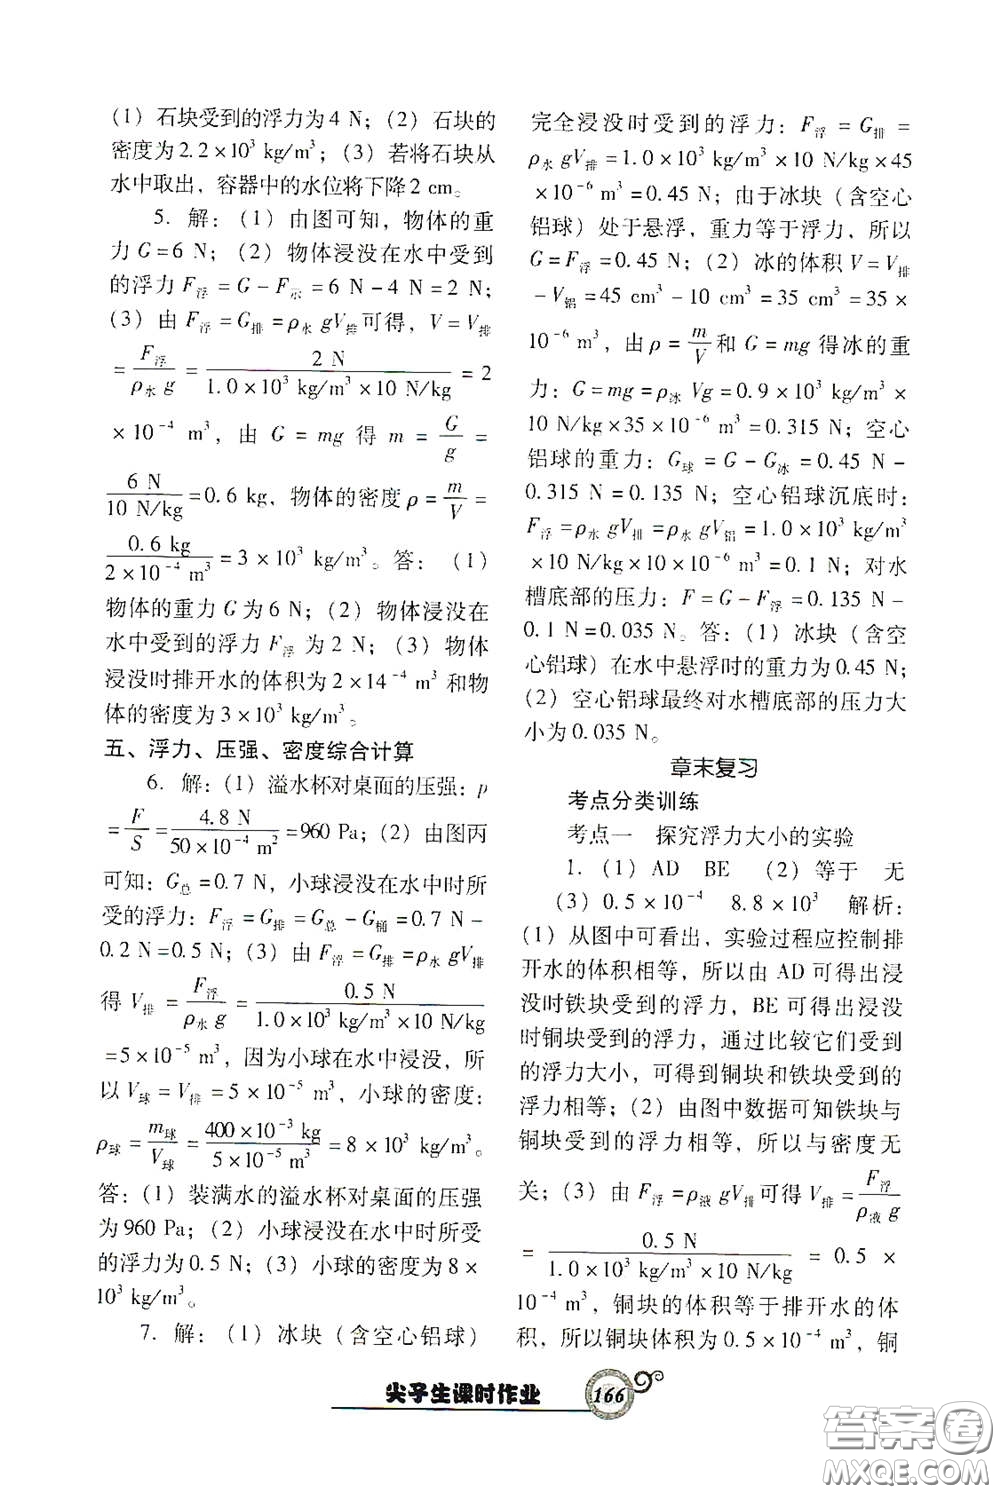 (1) 石块受到的浮力为4 N；(2) 石块的
密度为2.2×10³ kg/m³；(3) 若将石块从
水中取出，容器中的水位将下降2 cm。
5. 解：(1) 由图可知，物体的重
力G=6 N；(2) 物体浸没在水中受到
的浮力F浮=G-F示=6 N-4 N=2 N；
(3) 由F浮=G排=ρ水gV排可得，V=V排
=F浮/ρ水g=2 N/1.0×10³ kg/m³×10 N/kg=2
×10⁻⁴ m³，由G=mg得m=G/g=
6 N/10 N/kg=0.6 kg，物体的密度ρ=m/V=
0.6 kg/2×10⁻⁴ m³=3×10³ kg/m³。答：(1)
物体的重力G为6 N；(2) 物体浸没在
水中受到的浮力F浮为2 N；(3) 物体
浸没时排开水的体积为2×14⁻⁴ m³和物
体的密度为3×10³ kg/m³。
五、浮力、压强、密度综合计算
6. 解：(1) 溢水杯对桌面的压强：p
=F/S=4.8 N/50×10⁻⁴ m²=960 Pa；(2) 由图丙
可知：G总=0.7 N，小球浸没在水中时所
受的浮力：F浮=G排=G总-G桶=0.7 N-
0.2 N=0.5 N；(3) 由F浮=G排=ρ水gV排
得V排=F浮/ρ水g=0.5 N/1.0×10³ kg/m³×10 N/kg
=5×10⁻⁵ m³，因为小球在水中浸没，所
以V球=V排=5×10⁻⁵ m³，小球的密度：
ρ球=m球/V球=400×10⁻³ kg/5×10⁻⁵ m³=8×10³ kg/m³。
答：(1) 装满水的溢水杯对桌面的压强
为960 Pa；(2) 小球浸没在水中时所受
的浮力为0.5 N；(3) 小球的密度为8×
10³ kg/m³。
7. 解：(1) 冰块（含空心铝球）
完全浸没时受到的浮力：F浮=G排=
ρ水gV排=1.0×10³ kg/m³×10 N/kg×45
×10⁻⁶ m³=0.45 N；由于冰块（含空心
铝球）处于悬浮，重力等于浮力，所以
G=F浮=0.45 N；(2) 冰的体积V=V排
-V铝=45 cm³-10 cm³=35 cm³=35×
10⁻⁶ m³，由ρ=m/V和G=mg得冰的重
力：G=mg=ρ冰Vg=0.9×10³ kg/m³×
10 N/kg×35×10⁻⁶ m³=0.315 N；空心
铝球的重力：G球=G-G冰=0.45 N-
0.315 N=0.135 N；空心铝球沉底时：
F浮=ρ水gV排=ρ水gV铝=1.0×10³ kg/m³
×10 N/kg×10×10⁻⁶ m³=0.1 N；对水
槽底部的压力：F=G-F浮=0.135 N-
0.1 N=0.035 N。答：(1) 冰块（含空
心铝球）在水中悬浮时的重力为0.45 N；
(2) 空心铝球最终对水槽底部的压力大
小为0.035 N。
章末复习
考点分类训练
考点一 探究浮力大小的实验
1. (1) AD BE (2) 等于 无
(3) 0.5×10⁻⁴ 8.8×10³ 解析：
(1) 从图中可看出，实验过程应控制排
开水的体积相等，所以由AD可得出浸
没时铁块受到的浮力，BE可得出浸没
时铜块受到的浮力，通过比较它们受到
的浮力大小，可得到铜块和铁块受到的
浮力相等；(2) 由图中数据可知铁块与
铜块受到的浮力相等，所以与密度无
关；(3) 由F浮=ρ液gV排可得V排=F浮/ρ液g
=0.5 N/1.0×10³ kg/m³×10 N/kg=0.5×
10⁻⁴ m³，铜块的体积等于排开水的体
积，所以铜块体积为0.5×10⁻⁴ m³，铜
尖子生课时作业 166
答案圈
MXQE.COM